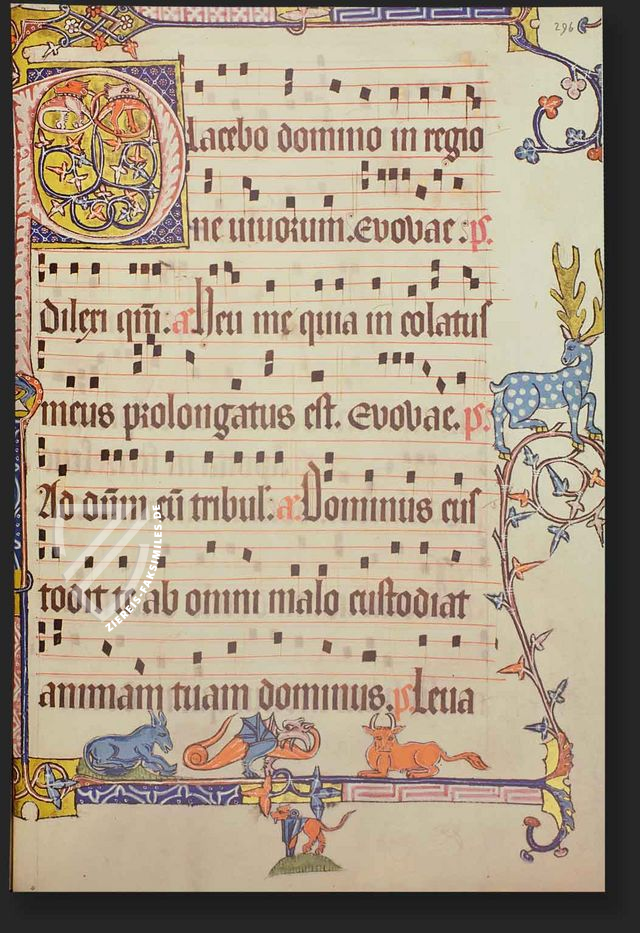 296
Placebo domino in regio
ne uiuorum. Evovae. ps.
Dilexi qm̄. a Heu me quia in colatus
meus prolongatus est. Evovae. ps.
Ad dn̄m cū tribul. a Dominus cus
todit te ab omni malo custodiat
animam tuam dominus. ps Leua
ZIEREIS-FAKSIMILES.DE